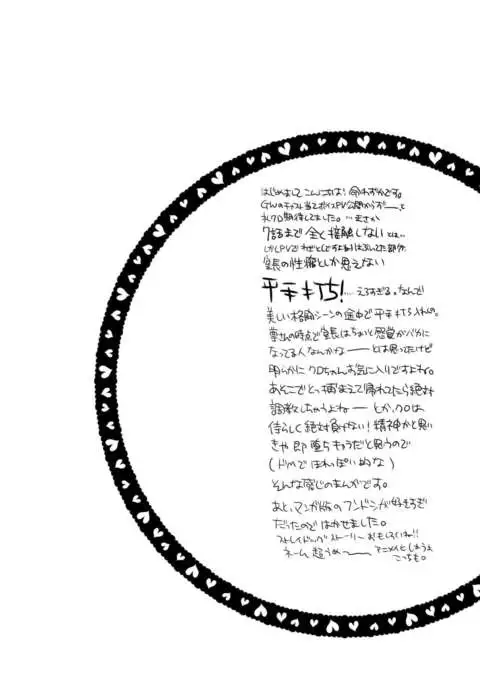 はじめまして こんにちは! 命わずかです。
GWのキャスト当てボイスPV公開からずーっと
礼クロ期待してました。…まさか
7話まで全く接触しないとは…
しかしPVでわざとじですよね!はぶいてた部分
室長の性癖としか思えない
平手打ち!……えろすぎる。なんで!
美しい格闘シーンの途中で平手打ち入れるの。
の時点で室長はちょいと感覚がバカに
なってる人なんかな――とは思ってたけど
明らかにクロちゃんお気に入りですよね。
あそこでとっ捕まえて帰れてたら絶対
調教しちゃうよね――とか、クロは
侍らしく絶対負けない!精神かと思い
きや 即 堕ちキャラだと思うので
(ドMでほれっぽい的な)
そんな感じのまんがです。
あと、マンガ版のフンドシが好きすぎ
だったので はかせました。
ストレイドッグストーリー おもしろいね!!
ネーム 超うめ―― アニメイヒしちゃうえ
こっちも。